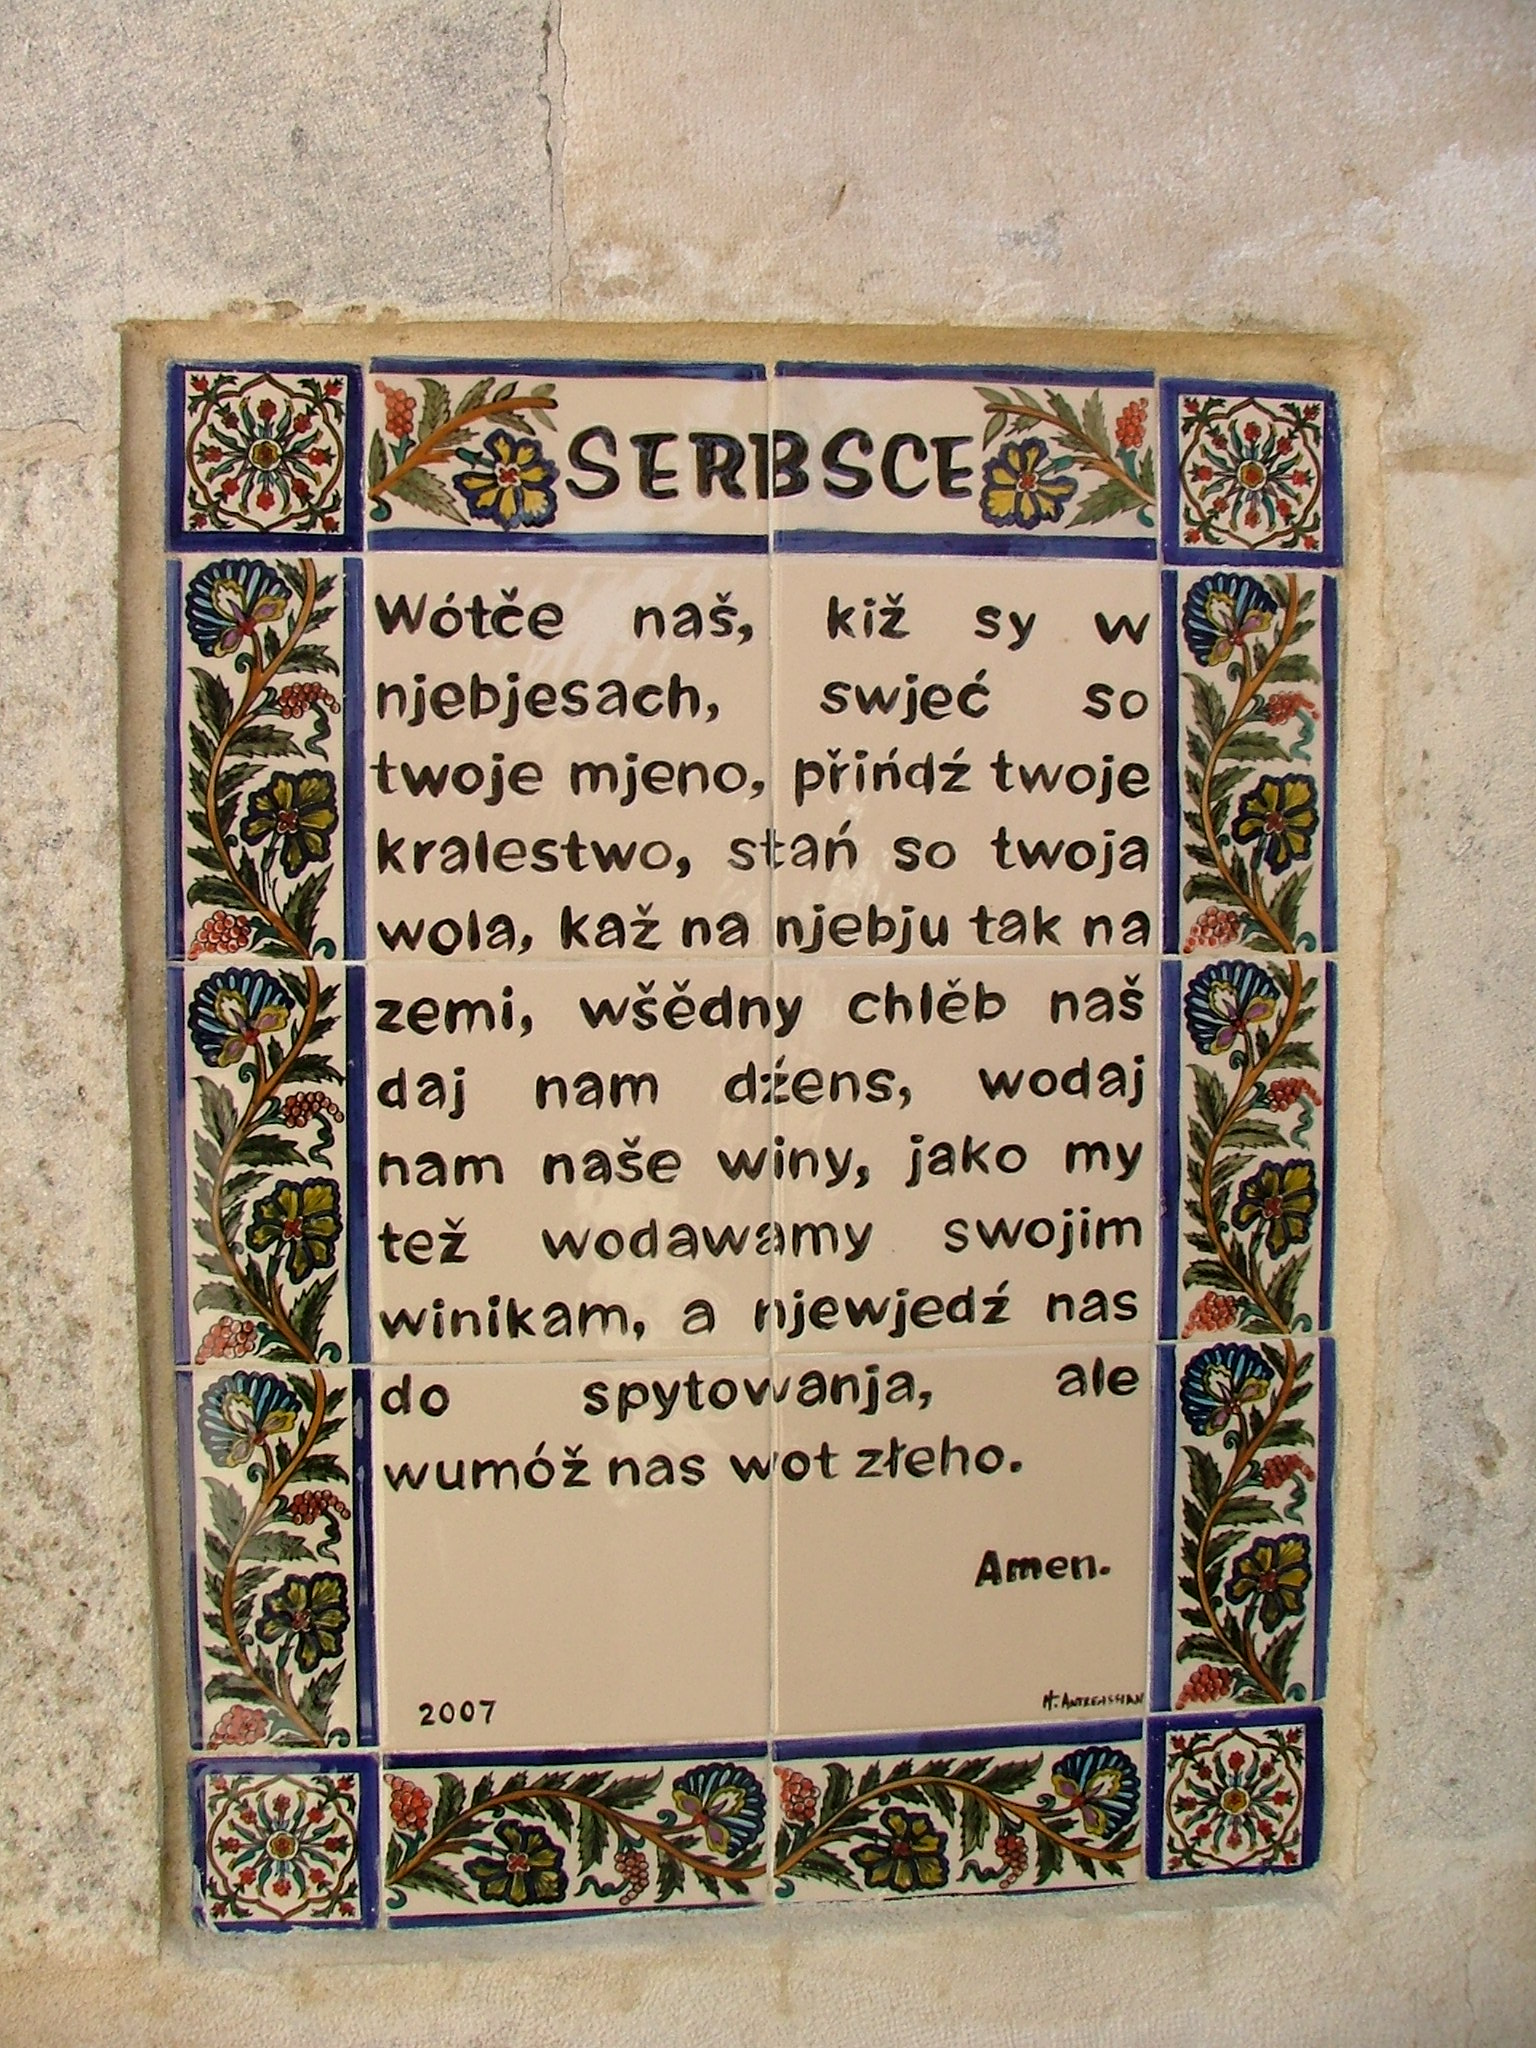 SERBSCE
Wótče naš, kiž sy w
njebjesach, swjeć so
twoje mjeno, přińdź twoje
kralestwo, stań so twoja
wola, kaž na njebju tak na
zemi, wšědny chlěb naš
daj nam dźens, wodaj
nam naše winy, jako my
tež wodawamy swojim
winikam, a njewjedź nas
do spytowanja, ale
wumóž nas wot złeho.
Amen.
2007
H. Antreassian